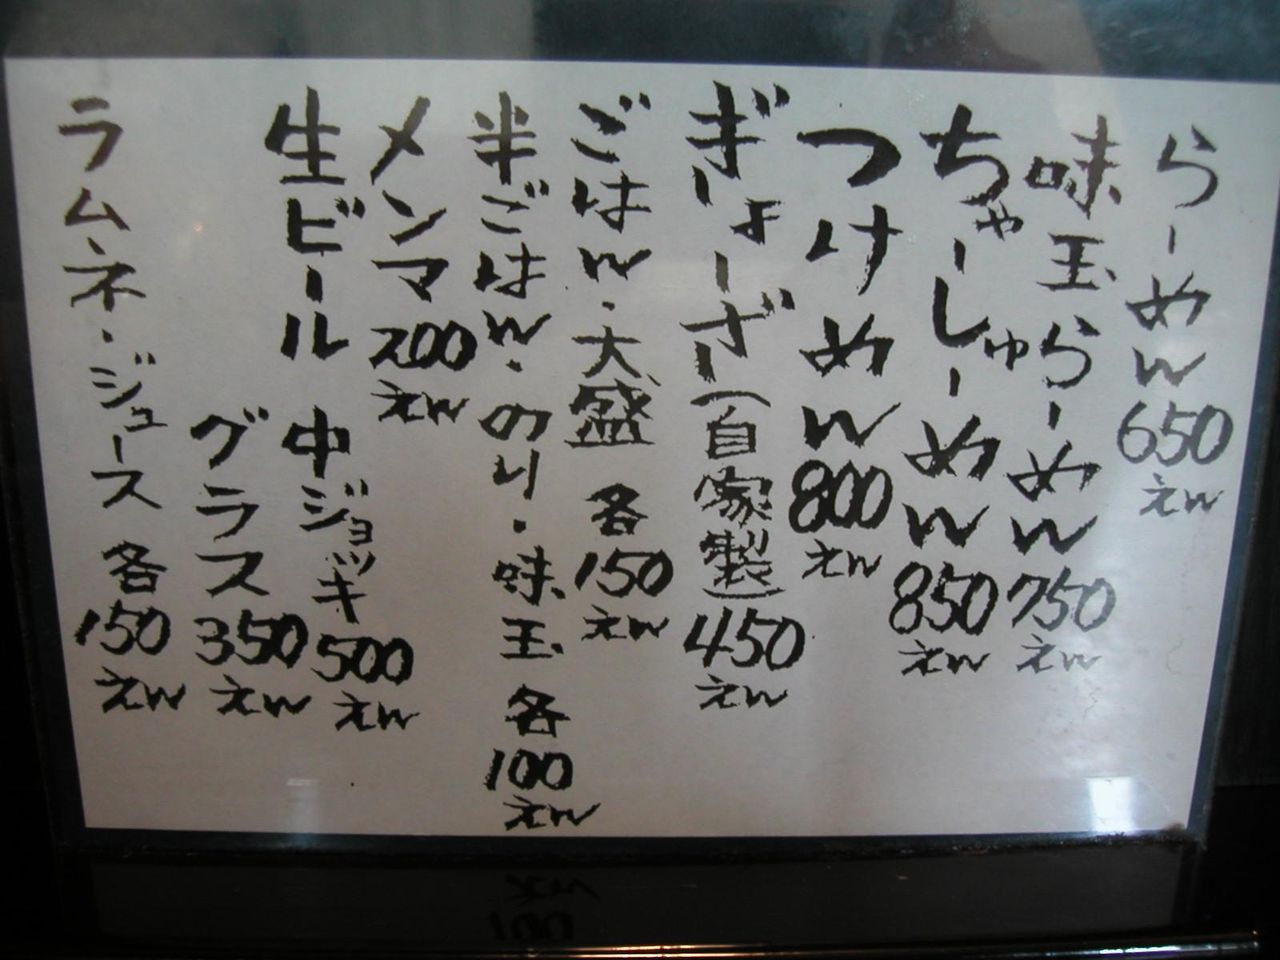 らーめん650えん
味玉らーめん750えん
ちゃーしゅーめん850えん
つけめん800えん
ぎょーざ(自家製)450えん
ごはん・大盛 各150えん
半ごはん・のり・味玉 各100えん
メンマ200えん
生ビール 中ジョッキ500えん
グラス350えん
ラムネ・ジュース 各150えん